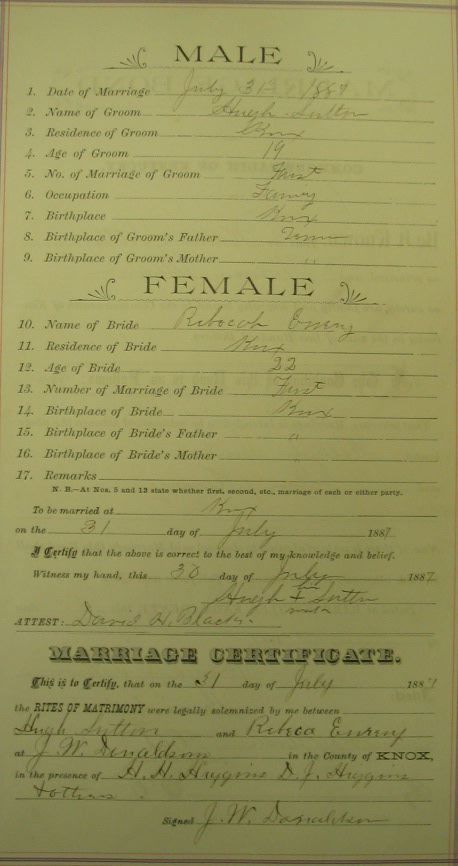 MALE
1. Date of Marriage July 31 1887
2. Name of Groom Hugh Sutton
3. Residence of Groom Knox
4. Age of Groom 19
5. No. of Marriage of Groom First
6. Occupation
7. Birthplace Knox
8. Birthplace of Groom's Father Tenn
9. Birthplace of Groom's Mother "
FEMALE
10. Name of Bride Rebecah
11. Residence of Bride Knox
12. Age of Bride 22
13. Number of Marriage of Bride First
14. Birthplace of Bride Knox
15. Birthplace of Bride's Father "
16. Birthplace of Bride's Mother "
17. Remarks
N. B.—At Nos. 5 and 13 state whether first, second, etc., marriage of each or either party.
To be married at Knox
on the 31 day of July 1887
I Certify that the above is correct to the best of my knowledge and belief.
Witness my hand, this 30 day of July 1887
Hugh Sutton
mark
ATTEST: David H. Black
MARRIAGE CERTIFICATE.
This is to Certify, that on the 31 day of July 1887
the RITES OF MATRIMONY were legally solemnized by me between
Hugh Sutton and Rebeca
at J. W. Donaldson in the County of KNOX,
in the presence of H. H. Huggins D. J. Huggins
& others
Signed J. W. Donaldson